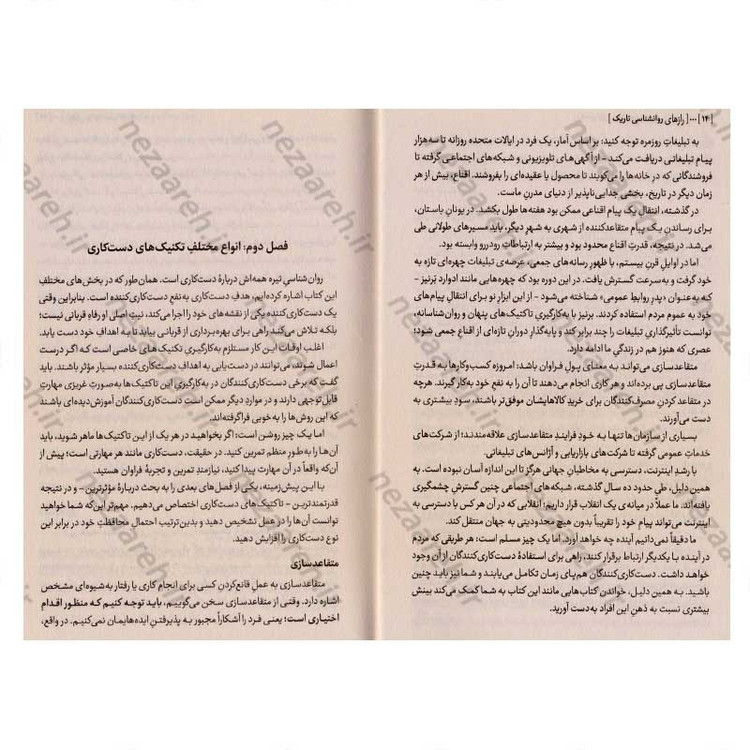 ۱۴ | ... [ رازهای روانشناسی تاریک ]
به تبلیغاتِ روزمره توجه کنید: بر اساس آمار، یک فرد در ایالات متحده روزانه تا سه‌هزار
پیـام تبلیغاتـی دریافت می‌کنـد – از آگهی‌هـای تلویزیونـی و شـبکه‌های اجتماعـی گرفته تا
فروشـندگانی که در خانه‌ها را می‌کوبند تا محصول یا عقیده‌ای را بفروشند. اقناع، بیش از هر
زمان دیگر در تاریخ، بخشی جدایی‌ناپذیر از دنیای مدرنِ ماست.
در گذشـته، انتقال یک پیام اقناعی ممکن بود هفته‌ها طول بکشـد. در یونـان باستان،
برای رساندن یک پیام متقاعدکننده از شهری به شهرِ دیگر، باید مسیرهای طولانی طی
می‌شد. در نتیجه، قدرتِ اقناع محدود بود و بیشتر به ارتباطاتِ رودررو وابسته بود.
اما در اوایلِ قرنِ بیستم، با ظهورِ رسانه‌های جمعی، عرصه‌ی تبلیغات چهره‌ای تازه به
خود گرفت و به‌سرعت گسترش یافت. در این دوره بود که چهره‌هایی مانند ادوارد بَرنیز –
کـه به‌عنـوان «پدرِ روابطِ عمومی» شـناخته می‌شـود – از این ابزارِ نو برای انتقالِ پیام‌های
خود به عموم مردم استفاده کردند. برنیز با به‌کارگیریِ تکنیک‌های پنهان و روان‌شناسانه،
توانست تأثیرگذاریِ تبلیغات را چند برابر کند و پایه‌گذارِ دورانِ تازه‌ای از اقناعِ جمعی شود؛
عصری که هنوز هم در زندگیِ ما ادامه دارد.
متقاعدسـازی می‌توانـد به معنای پول فراوان باشد: امـروزه کسب‌وکارها به قـدرتِ
متقاعدسازی پی برده‌اند و هر کاری انجام می‌دهند تا آن را به نفع خود به‌کار گیرند. هرچه
در متقاعد کردنِ مصرف‌کنندگان برای خریدِ کالاهایشـان موفق‌تر باشـند، سـودِ بیشتری به
دست می‌آورند.
بسـیاری از سـازمان‌ها تنها به خـودِ فراینـدِ متقاعدسازی علاقه‌مندند؛ از شرکت‌های
خدماتِ عمومی گرفته تا شرکت‌های بازاریابی و آژانس‌های تبلیغاتی.
با رشدِ اینترنت، دسترسی به مخاطبانِ جهانی هرگز تا این اندازه آسان نبوده است. به
همین دلیل، طیِ حدود ده سـالِ گذشـته، شـبکه‌های اجتماعی چنین گسترشِ چشمگیری
یافته‌اند. ما عملاً در میانه‌ی یک انقلاب قرار داریم؛ انقلابی که در آن هر کس با دسترسی به
اینترنت می‌تواند پیام خود را تقریباً بدون هیچ محدودیتی به جهان منتقل کند.
ما دقیقاً نمی‌دانیم آینده چه خواهد آورد. اما یک چیز مسلم است: هر طریقی که مردم
در آینـده با یکدیگر ارتباط برقرار کنند، راهی برای اسـتفادهٔ دسـت‌کاری‌کنندگان از آن وجود
خواهد داشت. دست‌کاری‌کنندگان هم‌پای زمان تکامل می‌یابند و شما نیز باید چنین
باشـید. به همین دلیل، خواندن کتاب‌هایی مانند این کتاب به شـما کمک می‌کند بینش
بیشتری نسبت به ذهنِ این افراد به‌دست آورید.
فصل دوم: انواع مختلفِ تکنیک‌های دست‌کاری
روان‌شناسیِ تیره همه‌اش دربارهٔ دست‌کاری است. همان‌طور که در بخش‌های مختلفِ
این کتاب اشاره کرده‌ایم، هدفِ دست‌کاری به نفعِ دست‌کاری‌کننده است. بنابراین وقتی
یک دست‌کاری‌کننده یکی از نقشه‌های خود را اجرا می‌کند، نیتِ اصلی او رفاهِ قربانی نیست؛
بلکـه تـلاش می‌کنـد راهی برای بهره‌بـرداری از قربانـی بیابد تا بـه اهدافِ خود دست یابد.
اغلـب اوقـات این کار مسـتلزم به‌کارگیریِ تکنیک‌های خاصی اسـت کـه اگـر درست
اعمال شوند، می‌توانند در دست‌یابی به اهدافِ دست‌کاری‌کننده بسیار مؤثر باشند. باید
گفت که برخی دست‌کاری‌کنندگان در به‌کارگیریِ این تاکتیک‌ها به‌صورتِ غریزی مهارتِ
قابل‌توجهی دارند و در مواردِ دیگر ممکن است دست‌کاری‌کنندگان آموزش‌دیده‌ای باشند
که این روش‌ها را به‌خوبی فراگرفته‌اند.
اما یک چیز روشن است: اگر بخواهید در هر یک از این تاکتیک‌ها ماهر شوید، باید
آن‌ها را به‌طورِ منظم تمرین کنید. در حقیقت، دست‌کاری مانندِ هر مهارتی است؛ پیش از
آن‌که واقعاً در آن مهارت پیدا کنید، نیازمندِ تمرین و تجربهٔ فراوان هستید.
بـا ایـن پیش‌زمینه، یکی از فصل‌های بعدی را به بحث دربارهٔ مؤثرترین – و در نتیجه
قدرتمندترین – تاکتیک‌های دست‌کاری اختصاص می‌دهیم. مهم‌تر این‌که شما خواهید
توانست آن‌ها را در عمل تشخیص دهید و بدین‌ترتیب احتمالِ محافظتِ خود در برابر این
نوع دست‌کاری را افزایش دهید.
متقاعدسازی
متقاعدسـازی به عملِ قانع‌کردنِ کسی برای انجام کاری یا رفتار به‌شیوه‌ای مشخص
اشاره دارد. وقتی از متقاعدسازی سخن می‌گوییم، باید توجه کنیم که منظور اقدامِ
اختیاری است؛ یعنی فرد را آشکاراً مجبور به پذیرفتنِ ایده‌هایمان نمی‌کنیم. در واقع،
nezaareh.ir
nezaareh.ir
nezaareh.ir
nezaareh.ir
nezaareh.ir
nezaareh.ir
nezaareh.ir
nezaareh.ir
nezaareh.ir